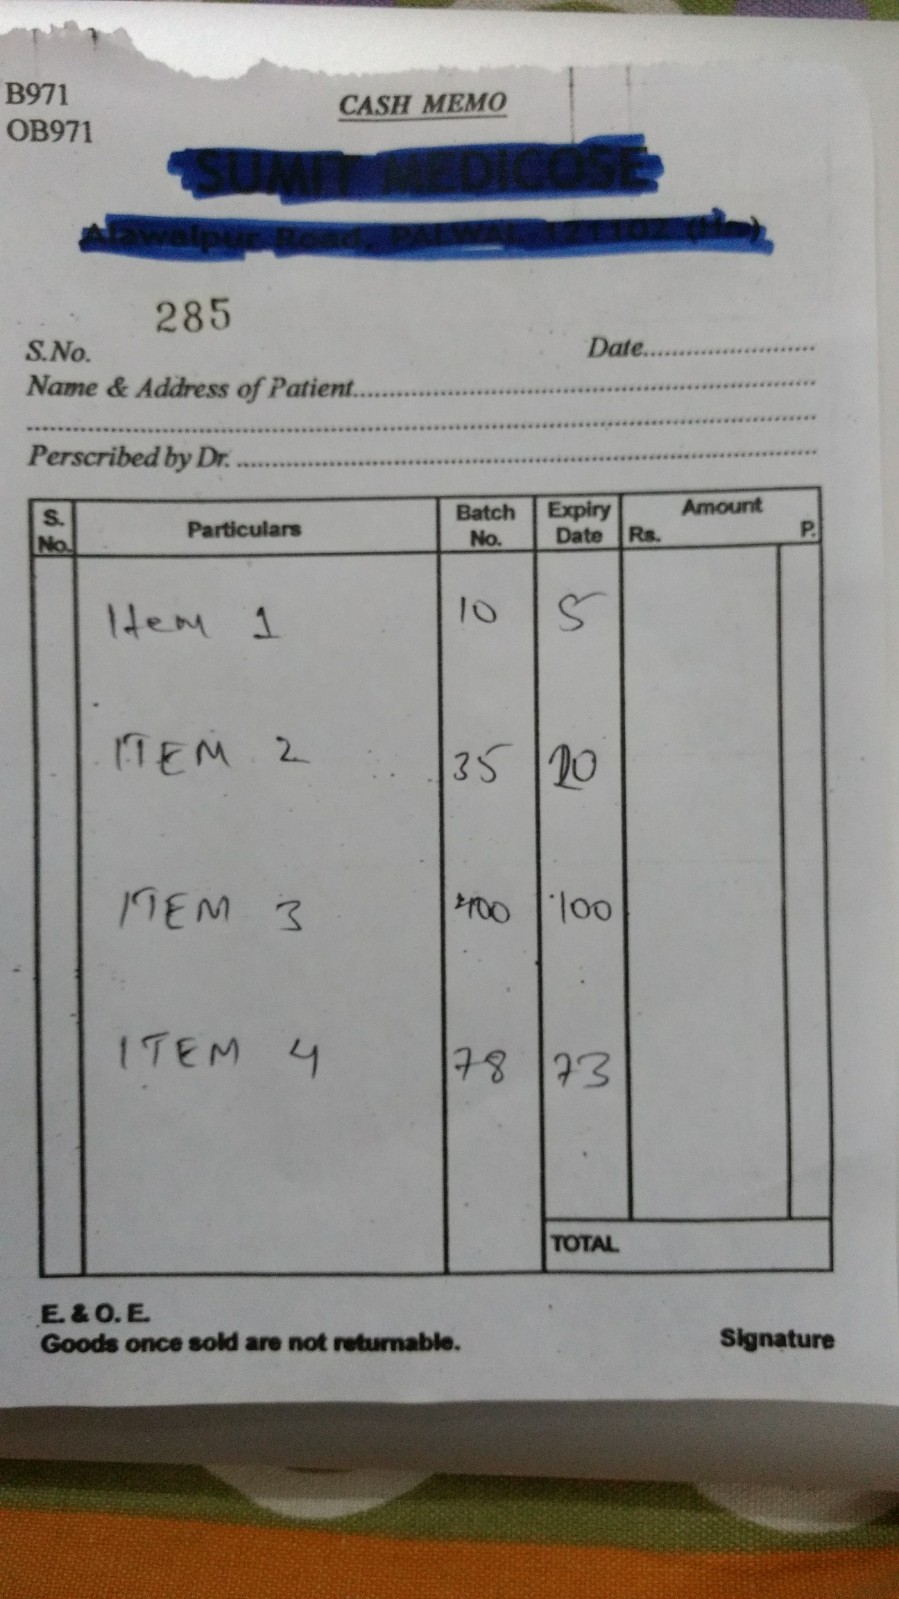 B971
OB971
CASH MEMO
SUMIT MEDICOSE
Alawalpur Road, PALWAL-121102 (Hr.)
285
S.No.
Date
Name & Address of Patient
Perscribed by Dr.
S. No. Particulars Batch No. Expiry Date Amount Rs. P.
Item 1 10 5
ITEM 2 35 20
ITEM 3 400 100
ITEM 4 78 73
TOTAL
E. & O. E.
Goods once sold are not returnable.
Signature